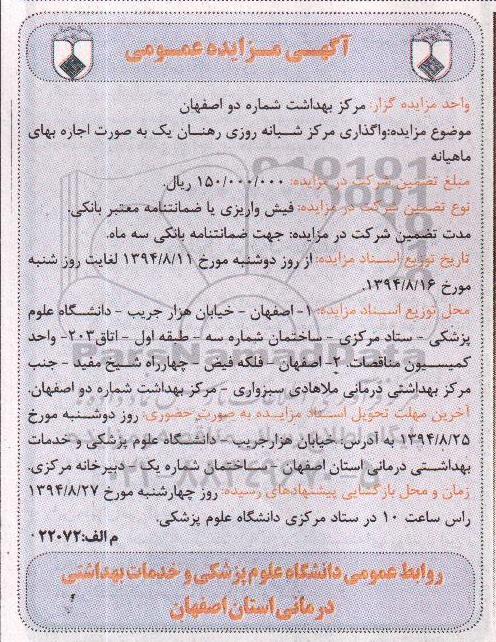 آگهـی مـزایده عمـومی
واحد مزایده گزار: مرکز بهداشت شماره دو اصفهان
موضوع مزایده:واگذاری مرکز شـبانه روزی رهنـان یک به صورت اجاره بهای
ماهیانه
مبلغ تضمین شرکت در مزایده: ۱۵۰/۰۰۰/۰۰۰ ریال.
نوع تضمین شرکت در مزایده: فیش واریزی یا ضمانتنامه معتبر بانکی.
مدت تضمین شرکت در مزایده: جهت ضمانتنامه بانکی سه ماه.
تاریخ توزیع اسـناد مزایده: از روز دوشنبه مورخ ۱۳۹۴/۸/۱۱ لغایت روز شنبه
مورخ ۱۳۹۴/۸/۱۶.
محل توزیع اسـناد مزایده: ۱- اصفهان - خیابان هزار جریب - دانشـگاه علوم
پزشکی - ستاد مرکزی - ساختمان شماره سه - طبقه اول - اتاق۲۰۳- واحد
کمیسـیون مناقصات. ۲- اصفهان - فلکه فیض - چهارراه شـیخ مفید - جنب
مرکز بهداشتی درمانی ملاهادی سبزواری - مرکز بهداشت شماره دو اصفهان.
آخرین مهلت تحویل اسـناد مزایـده به صورت حضوری: روز دوشـنبه مورخ
۱۳۹۴/۸/۲۵ به آدرس خیابان هزارجریب - دانشگاه علوم پزشکی و خدمات
بهداشـتی درمانی استان اصفهان - سـاختمان شماره یک - دبیرخانه مرکزی.
زمان و محل بازگشایی پیشنهادهای رسیده: روز چهارشنبه مورخ ۱۳۹۴/۸/۲۷
راس ساعت ۱۰ در ستاد مرکزی دانشگاه علوم پزشکی.
م الف:۲۲۰۷۲ ۰
روابط عمومی دانشگاه علوم پزشکی و خدمات بهداشتی
درمانی استان اصفهان
ParsNamadData